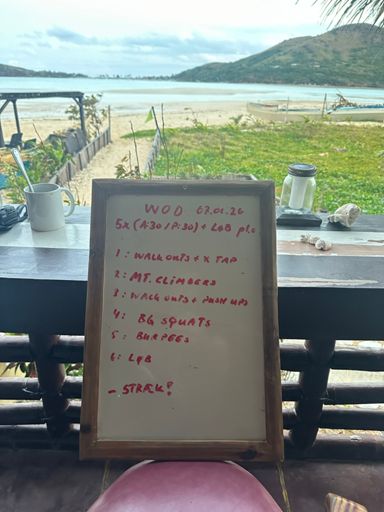 WOD 07.01.26
5x (A:30 / P:30) + LØB pl.
1: WALK OUTS + X TAP
2: MT. CLIMBERS
3: WALK OUTS + PUSH UPS
4: BG SQUATS
5: BURPEES
6: LØB
- STRÆK!